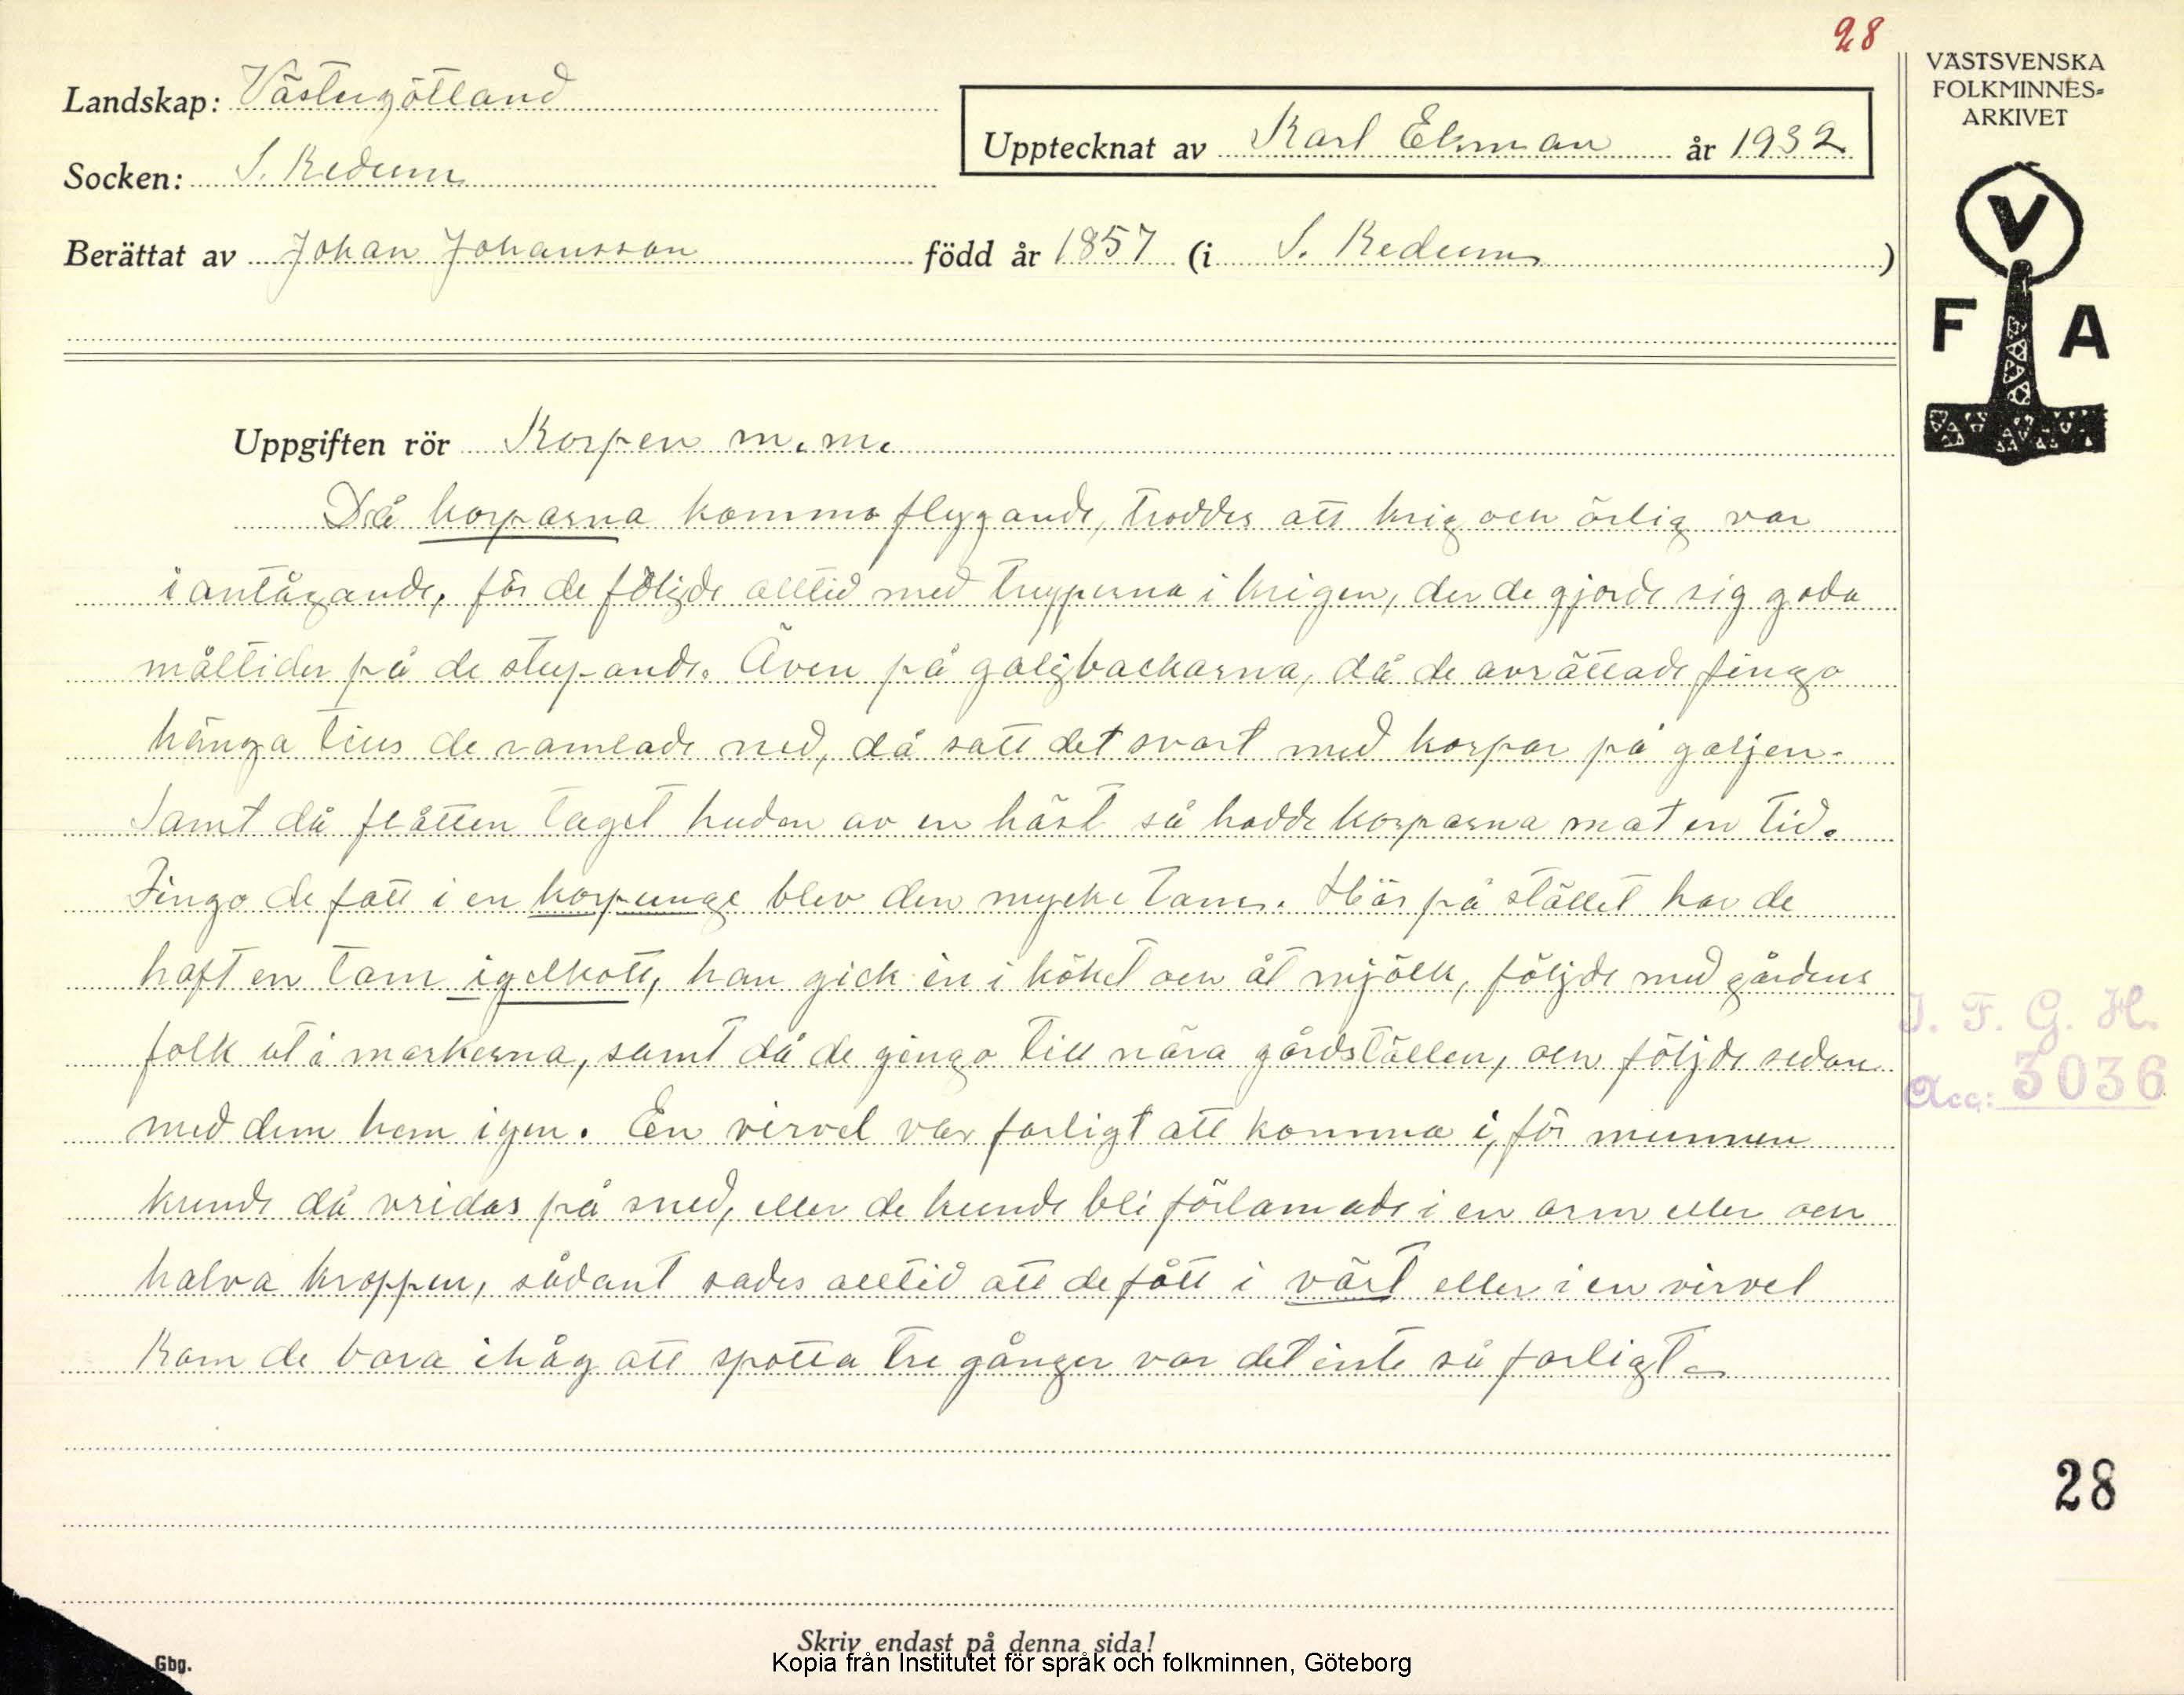 28
Landskap: Västergötland
Upptecknat av Karl Ekman år 1932
Socken: S. Kedum
Berättat av Johan Johansson född år 1857 (i S. Kedum )
VÄSTSVENSKA
FOLKMINNES-
ARKIVET
V
F A
Uppgiften rör Korpen m.m.
Då korparna kommo flygande, troddes att krig och örlig var
i antågande, för de följde alltid med trupperna i krigen, der de gjorde sig goda
måltider på de stupande. Även på galgbackarna, då de avrättade fingo
hänga tills de ramlade ned, då satt det svart med korpar på galjen.
Samt då flåtten taget huden av en häst så hadde korparna mat en tid.
Fingo de fatt i en korpunge blev den mycke tam. Här på stället har de
haft en tam igelkott, han gick in i köket och åt mjölk, följde med gårdens
folk ut å markerna, samt då de gingo till nära gårdställen, och följde sedan
med dem hem igen. En virvel var farligt att komma i, för munnen
kunde då vridas på sned, eller de kunde bli förlamade i en arm eller och
halva kroppen, sådant sades alltid att de fått i värt eller i en virvel
Kom de bara ihåg att spotta tre gånger var det inte så farligt.
I. F. G. H.
Acc: 3036
28
Skriv endast på denna sida!
Gbg.
Kopia från Institutet för språk och folkminnen, Göteborg